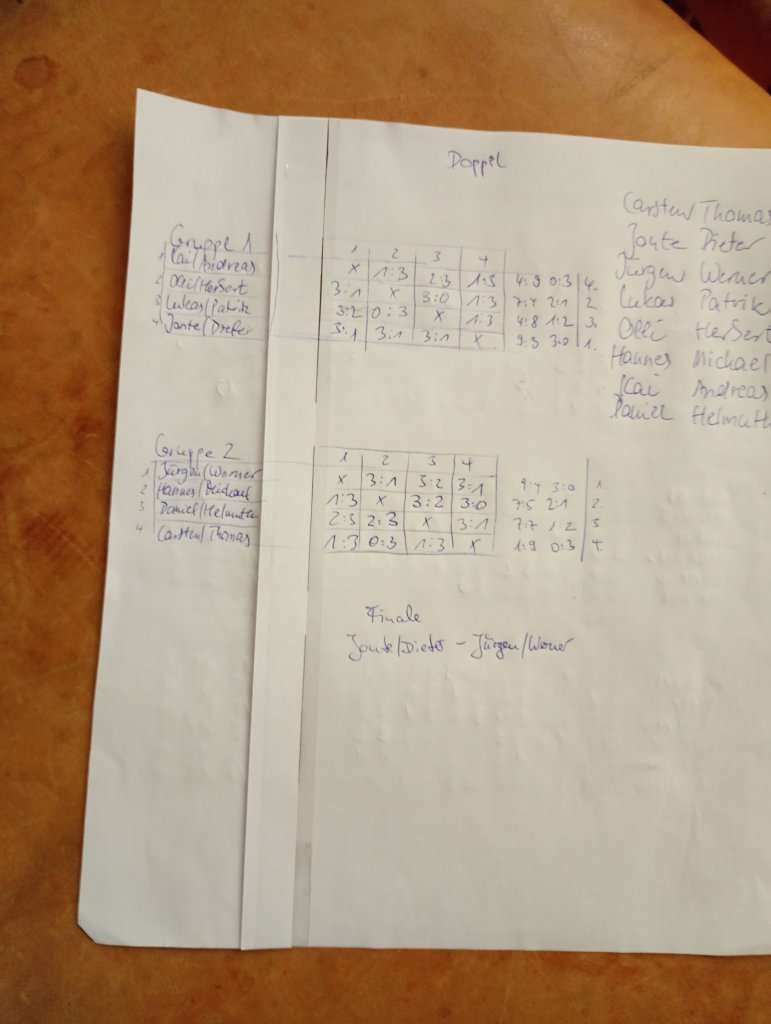 Doppel
Carsten Thomas
Jonte Dieter
Jürgen Werner
Lukas Patrik
Olli Herbert
Hannes Michael
Kai Andreas
Daniel Helmuth
Gruppe 1
1 2 3 4
1 Kai/Andreas X 1:3 2:3 1:3 4:9 0:3 4.
2 Olli/Herbert 3:1 X 3:0 1:3 7:4 2:1 2.
3 Lukas/Patrik 3:2 0:3 X 1:3 4:8 1:2 3.
4 Jonte/Dieter 3:1 3:1 3:1 X 9:3 3:0 1.
Gruppe 2
1 2 3 4
1 Jürgen/Werner X 3:1 3:2 3:1 9:4 3:0 1.
2 Hannes/Michael 1:3 X 3:2 3:0 7:5 2:1 2.
3 Daniel/Helmuth 2:3 2:3 X 3:1 7:7 1:2 3.
4 Carsten/Thomas 1:3 0:3 1:3 X 1:9 0:3 4.
Finale
Jonte/Dieter - Jürgen/Werner